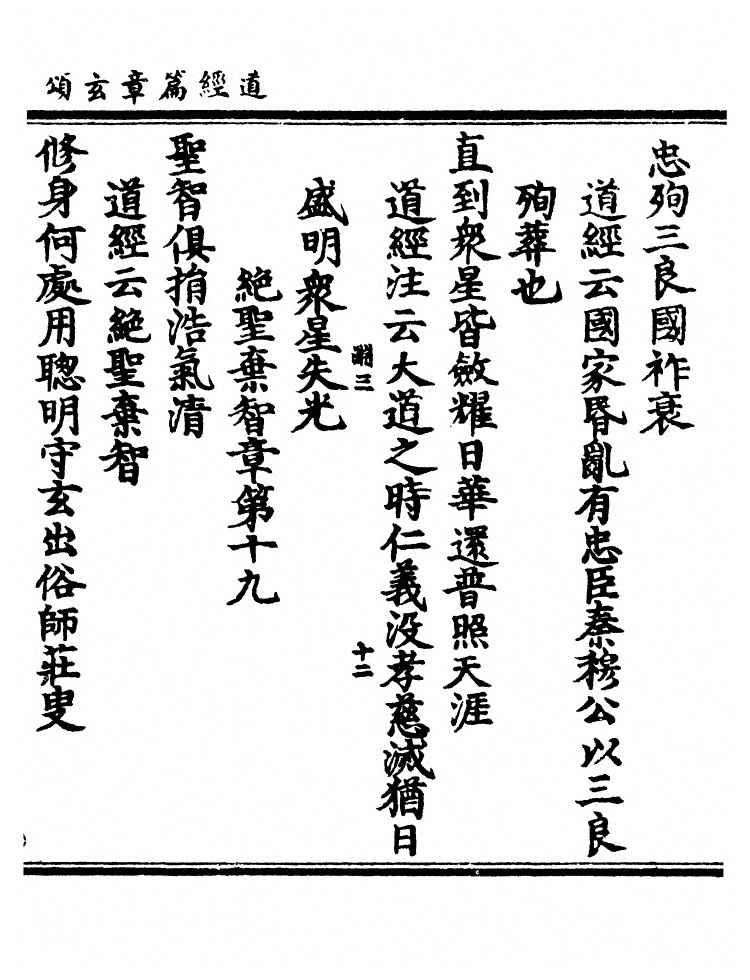 道經篇章玄頌
忠殉三良國祚衰
道經云國家昬亂有忠臣秦穆公以三良
殉葬也
直到衆星皆斂耀日華還普照天涯
道經注云大道之時仁義没孝慈滅猶日
十二
盛明衆星失光
絶聖棄智章第十九
聖智俱捐浩氣清
道經云絶聖棄智
修身何處用聰明守玄出俗師莊叟